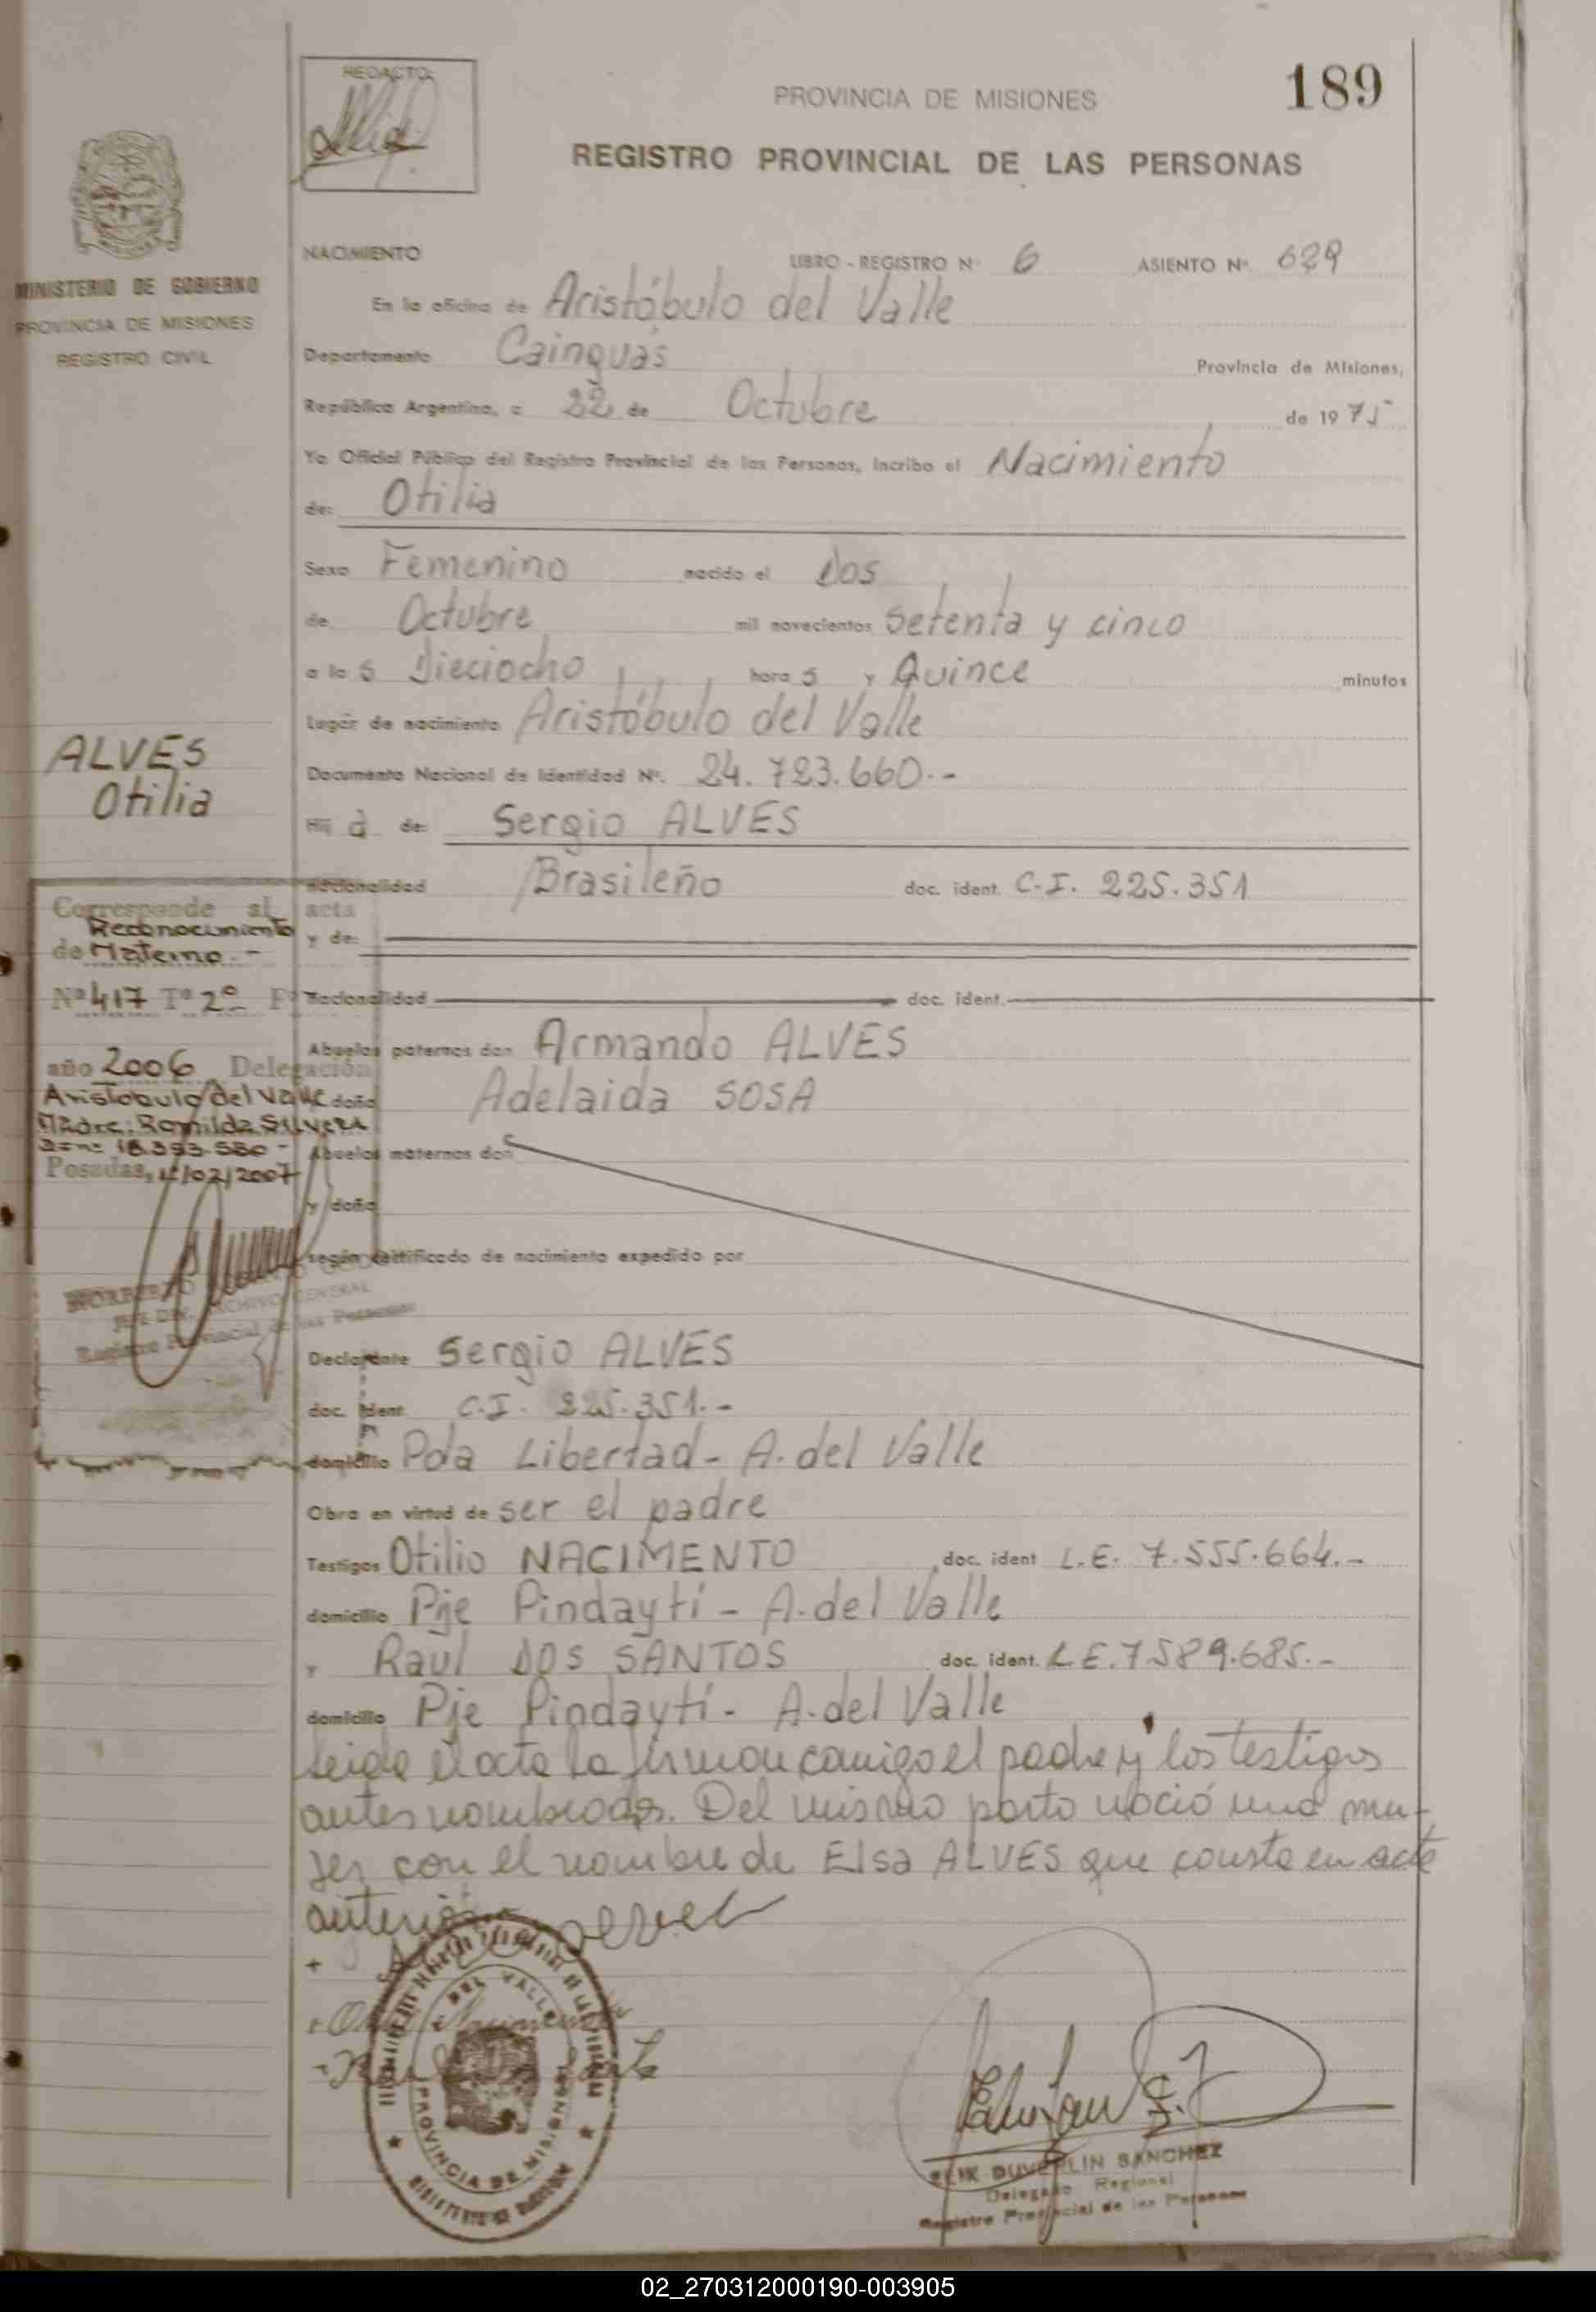 REDACTO:
PROVINCIA DE MISIONES
189
REGISTRO PROVINCIAL DE LAS PERSONAS
MINISTERIO DE GOBIERNO
PROVINCIA DE MISIONES
REGISTRO CIVIL
NACIMIENTO LIBRO - REGISTRO Nº 6 ASIENTO Nº 629
En la oficina de Aristóbulo del Valle
Departamento Cainguás Provincia de Misiones,
República Argentina, a 22 de Octubre de 1975
Yo Oficial Público del Registro Provincial de las Personas, inscribo el Nacimiento
de: Otilia
Sexo Femenino nacido el Dos
de Octubre mil novecientos setenta y cinco
a las Dieciocho horas y Quince minutos
Lugar de nacimiento Aristóbulo del Valle
Documento Nacional de Identidad Nº. 24.723.660.-
Hija de: Sergio ALVES
nacionalidad Brasileño doc. ident. C.I. 225.351
y de:
nacionalidad doc. ident.
Abuelos paternos don Armando ALVES
y doña Adelaida SOSA
Abuelos maternos don
y doña
según certificado de nacimiento expedido por
Declarante Sergio ALVES
doc. ident C.I. 225.351.-
domicilio Pda Libertad - A. del Valle
Obra en virtud de ser el padre
Testigos Otilio NACIMENTO doc. ident L.E. 7.555.664.-
domicilio Pje Pindaytí - A. del Valle
y Raul DOS SANTOS doc. ident. L.E. 7589.685.-
domicilio Pje Pindaytí - A. del Valle
Leida el acta la firman conmigo el padre y los testigos
antes nombrados. Del mismo parto nació una mu-
jer con el nombre de Elsa ALVES que consta en acta
anterior
ALVES
Otilia
Corresponde al acta
Reconocimiento
de Materno.-
Nº 417 Tº 2º Fº
año 2006 Delegación
Aristobulo del Valle
Madre: Romilda SILVERA
18.393.580-
Posadas, /02/2007
JEFE DIV. ARCHIVO GENERAL
Registro Provincial de las Personas
DEL VALLE
PROVINCIA DE MISIONES
SANCHEZ
Delegado Regional
Registro Provincial de las Personas
02_270312000190-003905